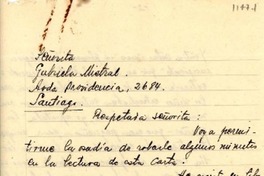 Señorita
Gabriela Mistral.
Avda Providencia, 2684.
Santiago.
Respetada señorita:
Voy a permi-
tirme la osadía de robarle algunos minutos
en la lectura de esta carta.